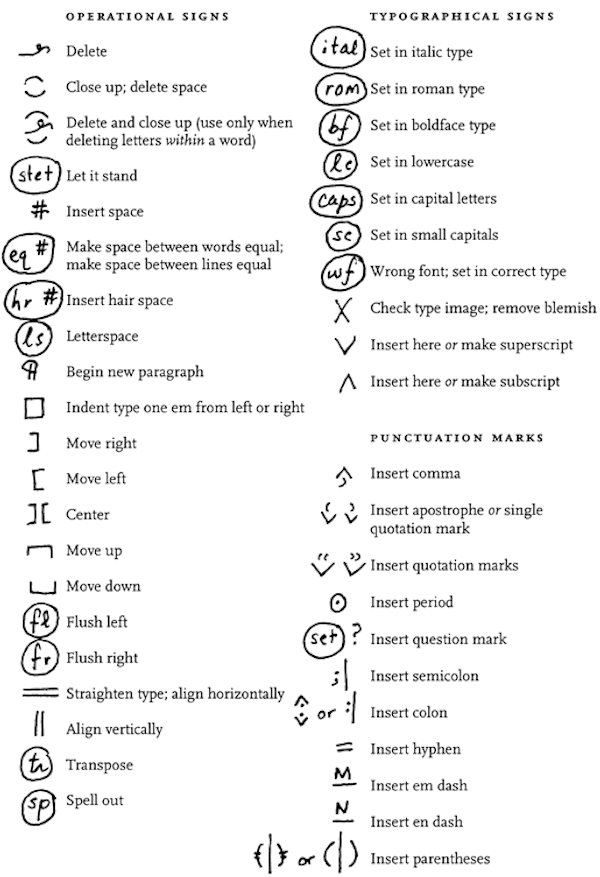 OPERATIONAL SIGNS
Delete
Close up; delete space
Delete and close up (use only when
deleting letters within a word)
stet Let it stand
# Insert space
eq # Make space between words equal;
make space between lines equal
hr # Insert hair space
ls Letterspace
¶ Begin new paragraph
□ Indent type one em from left or right
] Move right
[ Move left
][ Center
Move up
Move down
fl Flush left
fr Flush right
Straighten type; align horizontally
|| Align vertically
tr Transpose
sp Spell out
TYPOGRAPHICAL SIGNS
ital Set in italic type
rom Set in roman type
bf Set in boldface type
lc Set in lowercase
caps Set in capital letters
sc Set in small capitals
wf Wrong font; set in correct type
X Check type image; remove blemish
∨ Insert here or make superscript
∧ Insert here or make subscript
PUNCTUATION MARKS
Insert comma
Insert apostrophe or single
quotation mark
Insert quotation marks
⊙ Insert period
set ? Insert question mark
;| Insert semicolon
or :| Insert colon
= Insert hyphen
M Insert em dash
N Insert en dash
(|) or (|) Insert parentheses